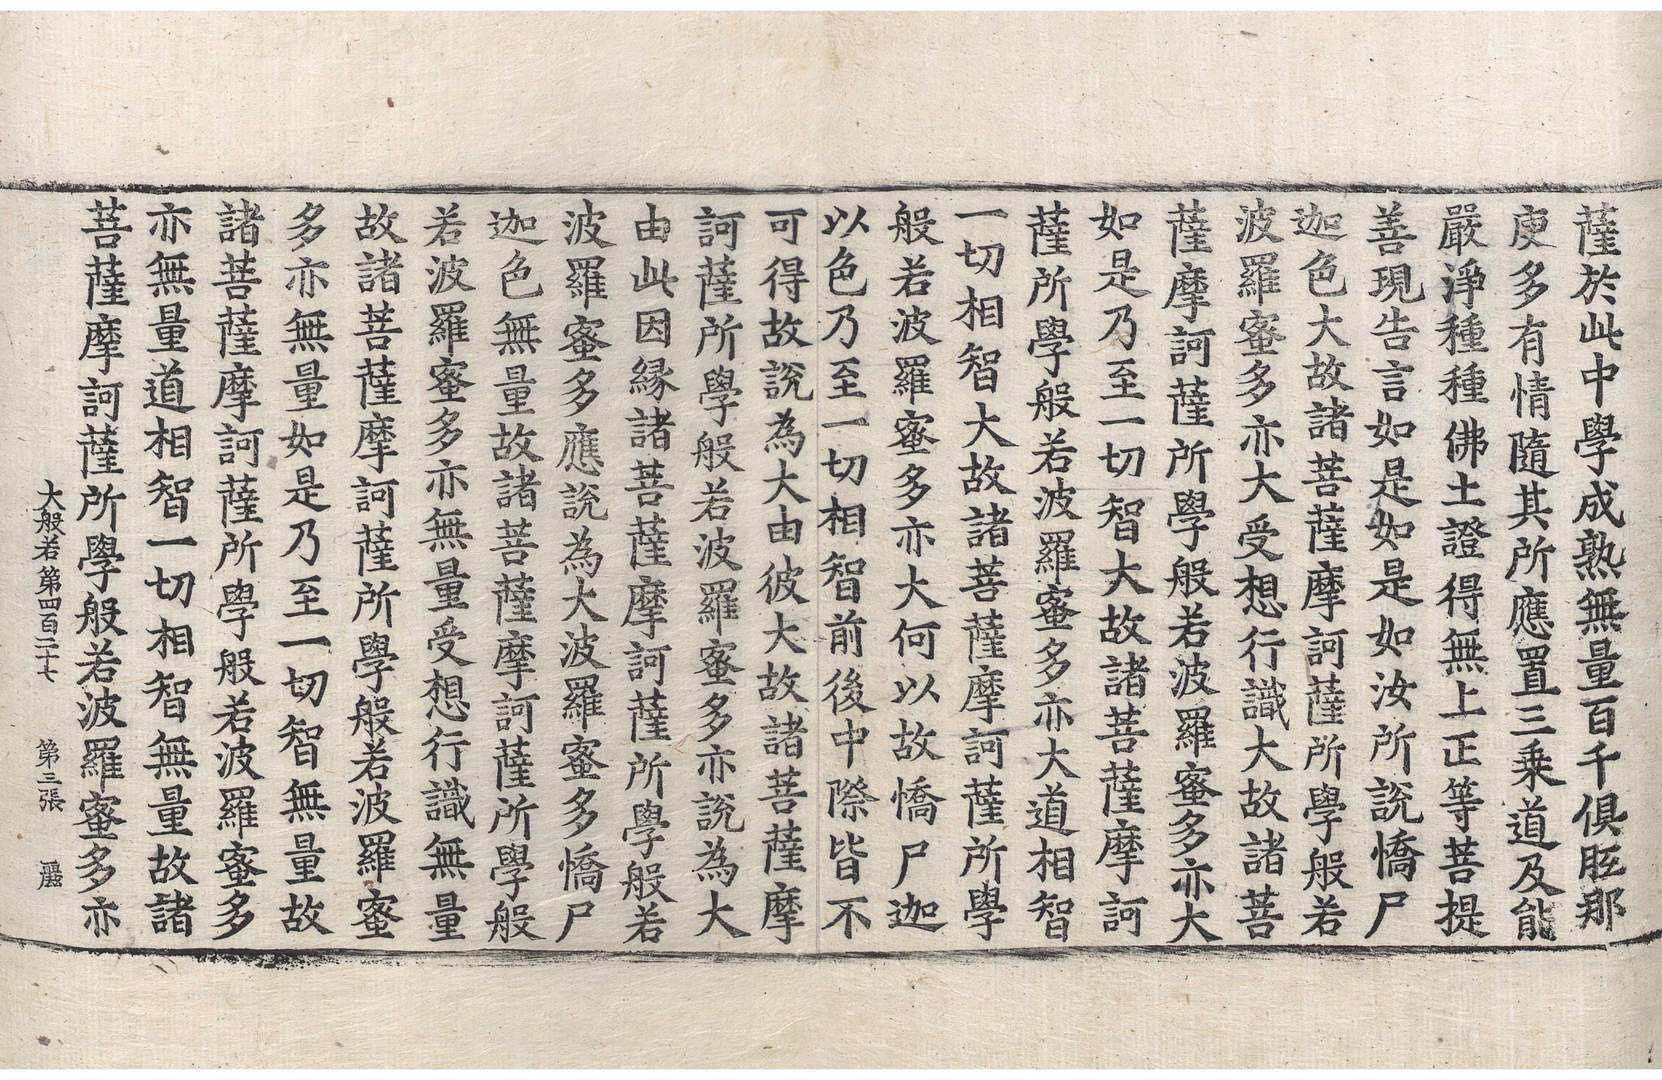 薩於此中學成熟無量百千俱胝那
庾多有情隨其所應置三乘道及能
嚴淨種種佛土證得無上正等菩提
善現告言如是如是如汝所說憍尸
迦色大故諸菩薩摩訶薩所學般若
波羅蜜多亦大受想行識大故諸菩
薩摩訶薩所學般若波羅蜜多亦大
如是乃至一切智大故諸菩薩摩訶
薩所學般若波羅蜜多亦大道相智
一切相智大故諸菩薩摩訶薩所學
般若波羅蜜多亦大何以故憍尸迦
以色乃至一切相智前後中際皆不
可得故說為大由彼大故諸菩薩摩
訶薩所學般若波羅蜜多亦說為大
由此因緣諸菩薩摩訶薩所學般若
波羅蜜多應說為大波羅蜜多憍尸
迦色無量故諸菩薩摩訶薩所學般
若波羅蜜多亦無量受想行識無量
故諸菩薩摩訶薩所學般若波羅蜜
多亦無量如是乃至一切智無量故
諸菩薩摩訶薩所學般若波羅蜜多
亦無量道相智一切相智無量故諸
菩薩摩訶薩所學般若波羅蜜多亦
大般若第四百二十七 第三張 麗